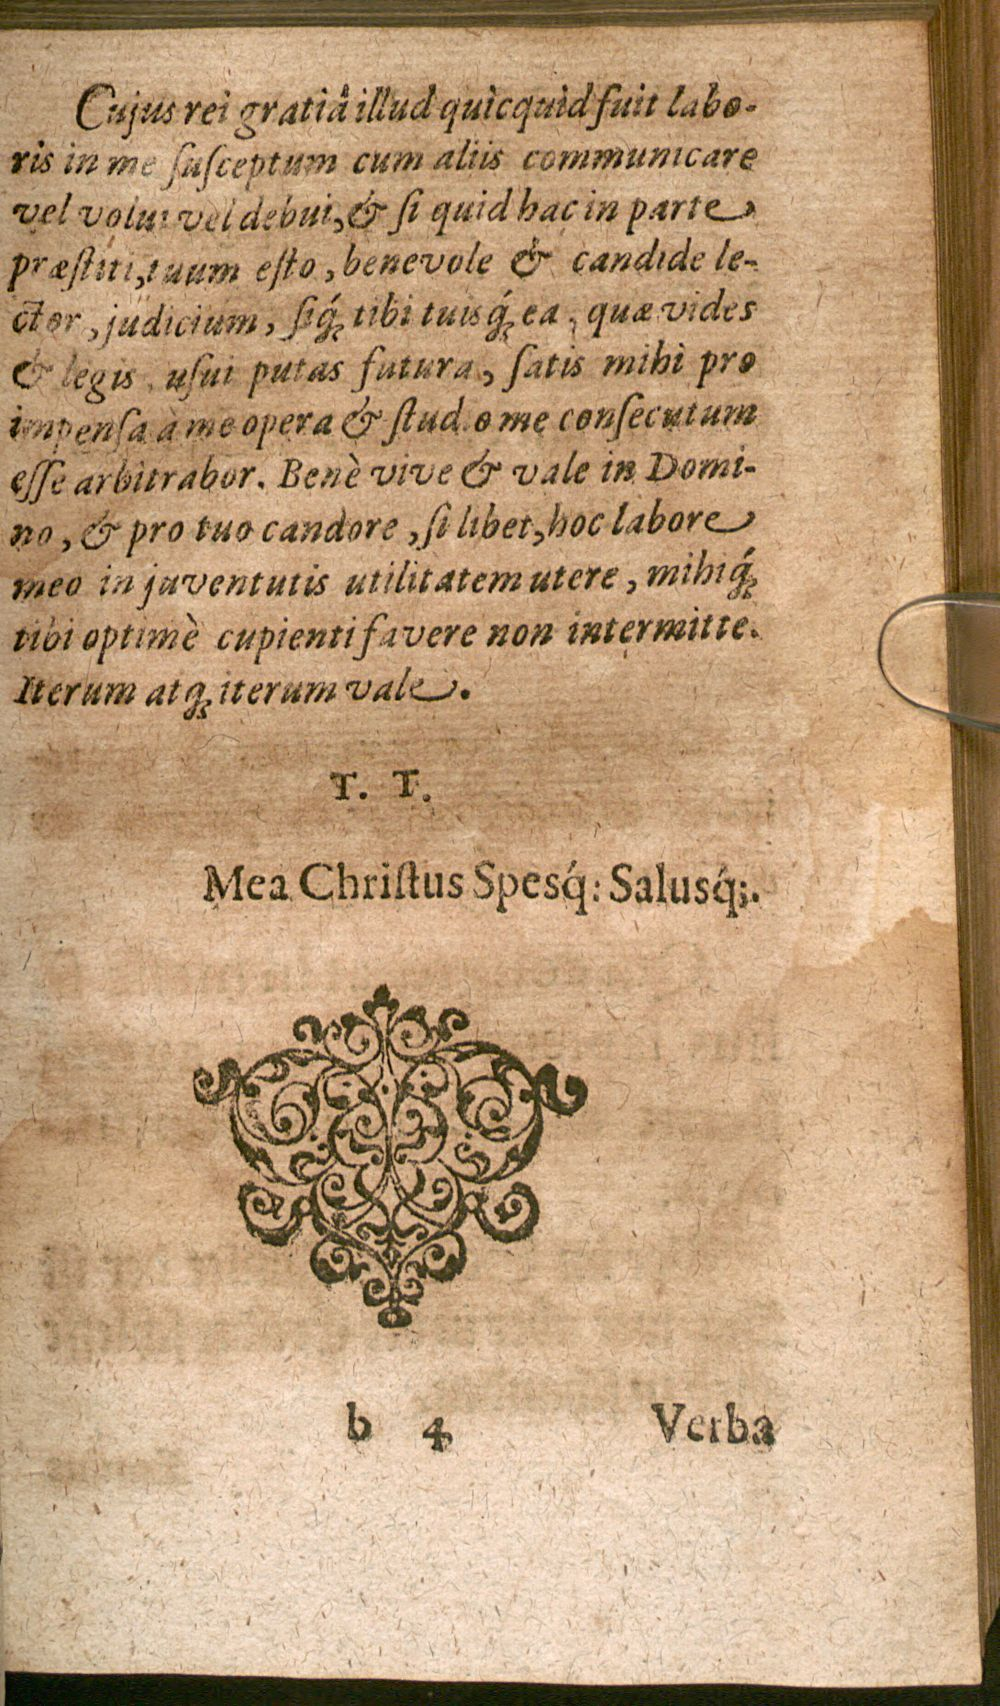 Cujus rei gratiâ illud quicquid fuit labo-
ris in me ſuſceptum cum aliis communicare
vel volui vel debui, & ſi quid hac in parte
præſtiti, tuum eſto, benevole & candide le-
ctor, judicium, ſiq́ꝫ tibi tuisq́ꝫ ea, quæ vides
& legis, uſui putas futura, ſatis mihi pro
impenſa à me opera & ſtudio me conſecutum
eſſe arbitrabor. Benè vive & vale in Domi-
no, & pro tuo candore, ſi libet, hoc labore
meo in juventutis utilitatem utere, mihiq́ꝫ
tibi optimè cupienti favere non intermitte.
Iterum atqꝫ iterum vale.
T. T.
Mea Chriſtus Spesq́: Salusq́;.
b 4 Verba